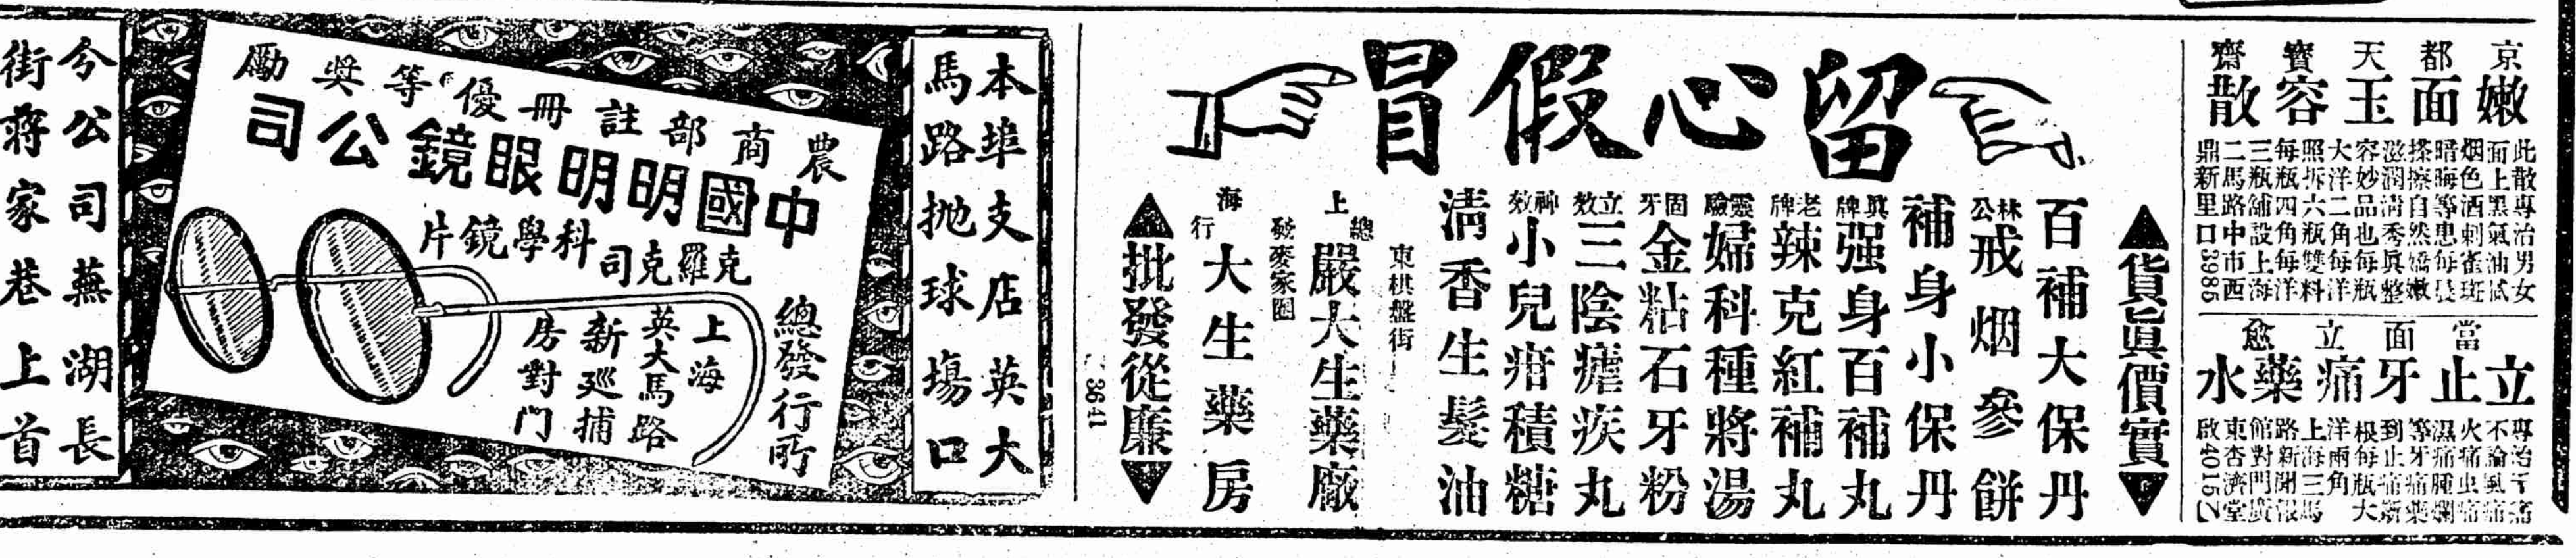 京都天寶齋
嫩面玉容散
此散專治男女
面上黑氣油膩
烟色酒刺雀斑
暗晦等患每晨
搽擦自然嬌嫩
滋潤清秀眞整
容妙品也每瓶
大洋二角每洋
照拆六瓶雙料
每瓶四角每洋
三瓶舖設上海
二馬路中市西
鼎新里口3985
當面立愈
立止牙痛藥水
專治牙痛
不論風痛
火痛虫痛
濕痛腫爛
等牙痛藥
到止痛斷
根每瓶大
洋兩角
上海三馬
路新聞報
館對門廣
東杏濟堂
啟4015乙
貨眞價實
留心假冒
百補大保丹
林公戒烟參餅
補身小保丹
眞牌强身百補丸
老牌辣克紅補丸
靈驗婦科種將湯
固牙金粘石牙粉
立效三陰瘧疾丸
神效小兒疳積糖
清香生髮油
東棋盤街
上海
總發行
嚴大生藥廠
麥家圈
大生藥房
批發從廉
3641
本埠支店英大
馬路拋球塲口
農商部註冊優等奬勵
中國明明眼鏡公司
克羅克司科學鏡片
總發行所
上海
英大馬路
新巡捕
房對門
今公司蕪湖長
街蔣家巷上首